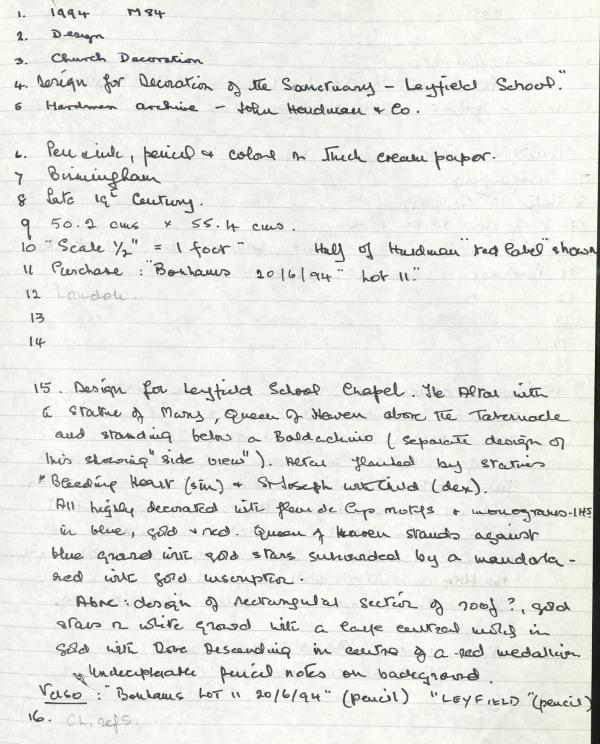 1. 1994 M84
2. Design
3. Church Decoration
4. Design for Decoration of the Sanctuary - Leyfield School."
5 Hardman archive - John Hardman & Co.
6. Pen & ink, pencil & colours on thick cream paper.
7 Birmingham
8 Late 19th Century.
9 50.2 cms x 55.4 cms.
10 "Scale 1/2" = 1 foot" Half of Hardman "red label" shown
11 Purchase : "Bonhams 20/6/94" Lot 11."
12 London.
13
14
15. Design for Leyfield School Chapel. The Altar with
a statue of Mary, Queen of Heaven above the Tabernacle
and standing below a Baldachino (separate design of
this showing "side view"). Altar flanked by statues
"Bleeding Heart (sin) & St Joseph with Child (dex).
All highly decorated with fleur de lys motifs & monograms-IHS
in blue, gold & red. Queen of Heaven stands against
blue ground with gold stars surrounded by a mandorla -
red with gold inscription.
Above : design of rectangular section of roof?, gold
stars on white ground with a large central motif in
gold with Dove Descending in centre of a red medallion.
Undecipherable pencil notes on background.
Verso : "Bonhams LOT 11 20/6/94" (pencil) "LEYFIELD" (pencil)
16. Ch, refs.